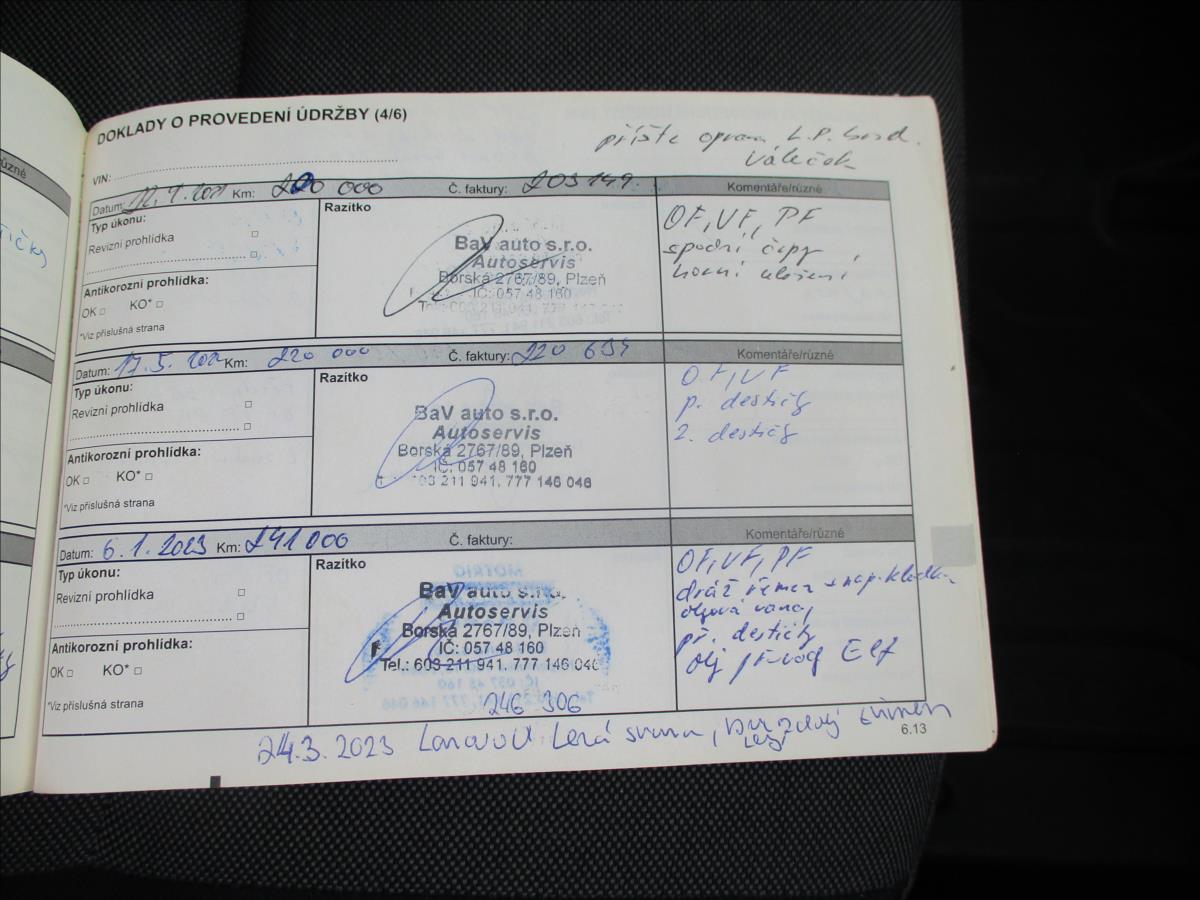 DOKLADY O PROVEDENÍ ÚDRŽBY (4/6)
příště oprava L.P. brzd.
váleček
VIN:
Datum: 12.1.2021 Km: 220 000 Č. faktury: 203149 Komentáře/různé
Typ úkonu:
Revizní prohlídka
Antikorozní prohlídka:
OK KO*
*Viz příslušná strana
Razítko
BaV auto s.r.o.
Autoservis
Borská 2767/89, Plzeň
IČ: 057 48 160
OF, VF, PF
spodní čepy,
horní uložení
Datum: 17.5. Km: 220 000 Č. faktury: 220 634 Komentáře/různé
Typ úkonu:
Revizní prohlídka
Antikorozní prohlídka:
OK KO*
*Viz příslušná strana
Razítko
BaV auto s.r.o.
Autoservis
Borská 2767/89, Plzeň
IČ: 057 48 160
603 211 941, 777 146 046
OF, VF
p. destičky
z. destičky
Datum: 6.1.2023 Km: 241 000 Č. faktury: Komentáře/různé
Typ úkonu:
Revizní prohlídka
Antikorozní prohlídka:
OK KO*
*Viz příslušná strana
Razítko
MOTRIO
BaV auto s.r.o.
Autoservis
Borská 2767/89, Plzeň
IČ: 057 48 160
Tel.: 603 211 941, 777 146 046
246 306
OF, VF, PF
dráž řemen + nap. kladka
olejová vana,
př. destičky
olej Elf
24.3.2023 Lanovod Levá strana, brzdový třmen
Levý
6.13